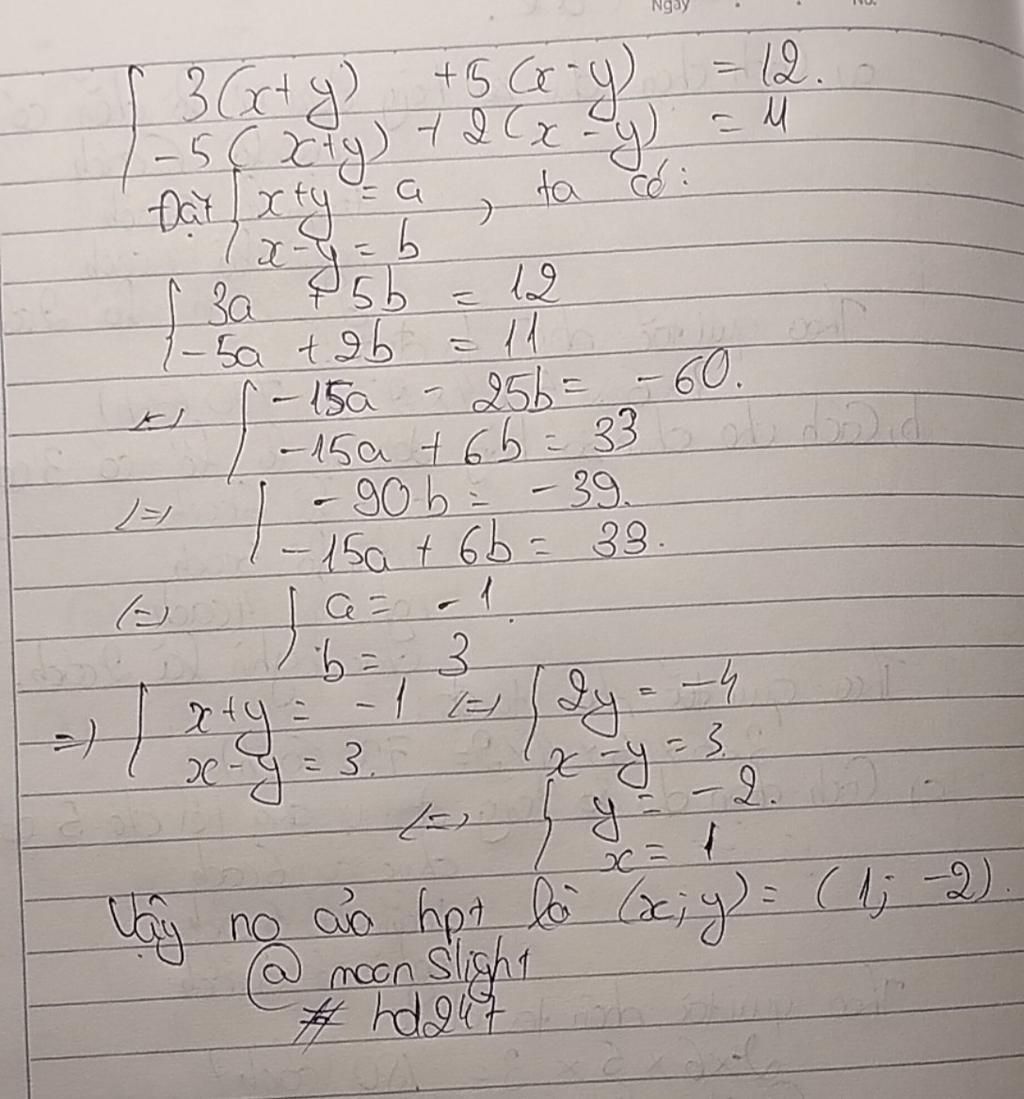 Ngày
No.
3(x+y) +5(x-y) = 12.
-5(x+y) + 2(x-y) = 11
Đặt { x+y = a , ta có:
x-y = b
3a + 5b = 12
-5a + 2b = 11
<=> { -15a - 25b = -60.
-15a + 6b = 33
<=> { -90b = -39.
-15a + 6b = 33.
<=> { a = -1.
b = 3
=> { x+y = -1 <=> { 2y = -4
x-y = 3. x-y = 3.
<=> { y = -2.
x = 1
Vậy no của hpt là (x;y) = (1; -2).
@ moonslight
# hd247